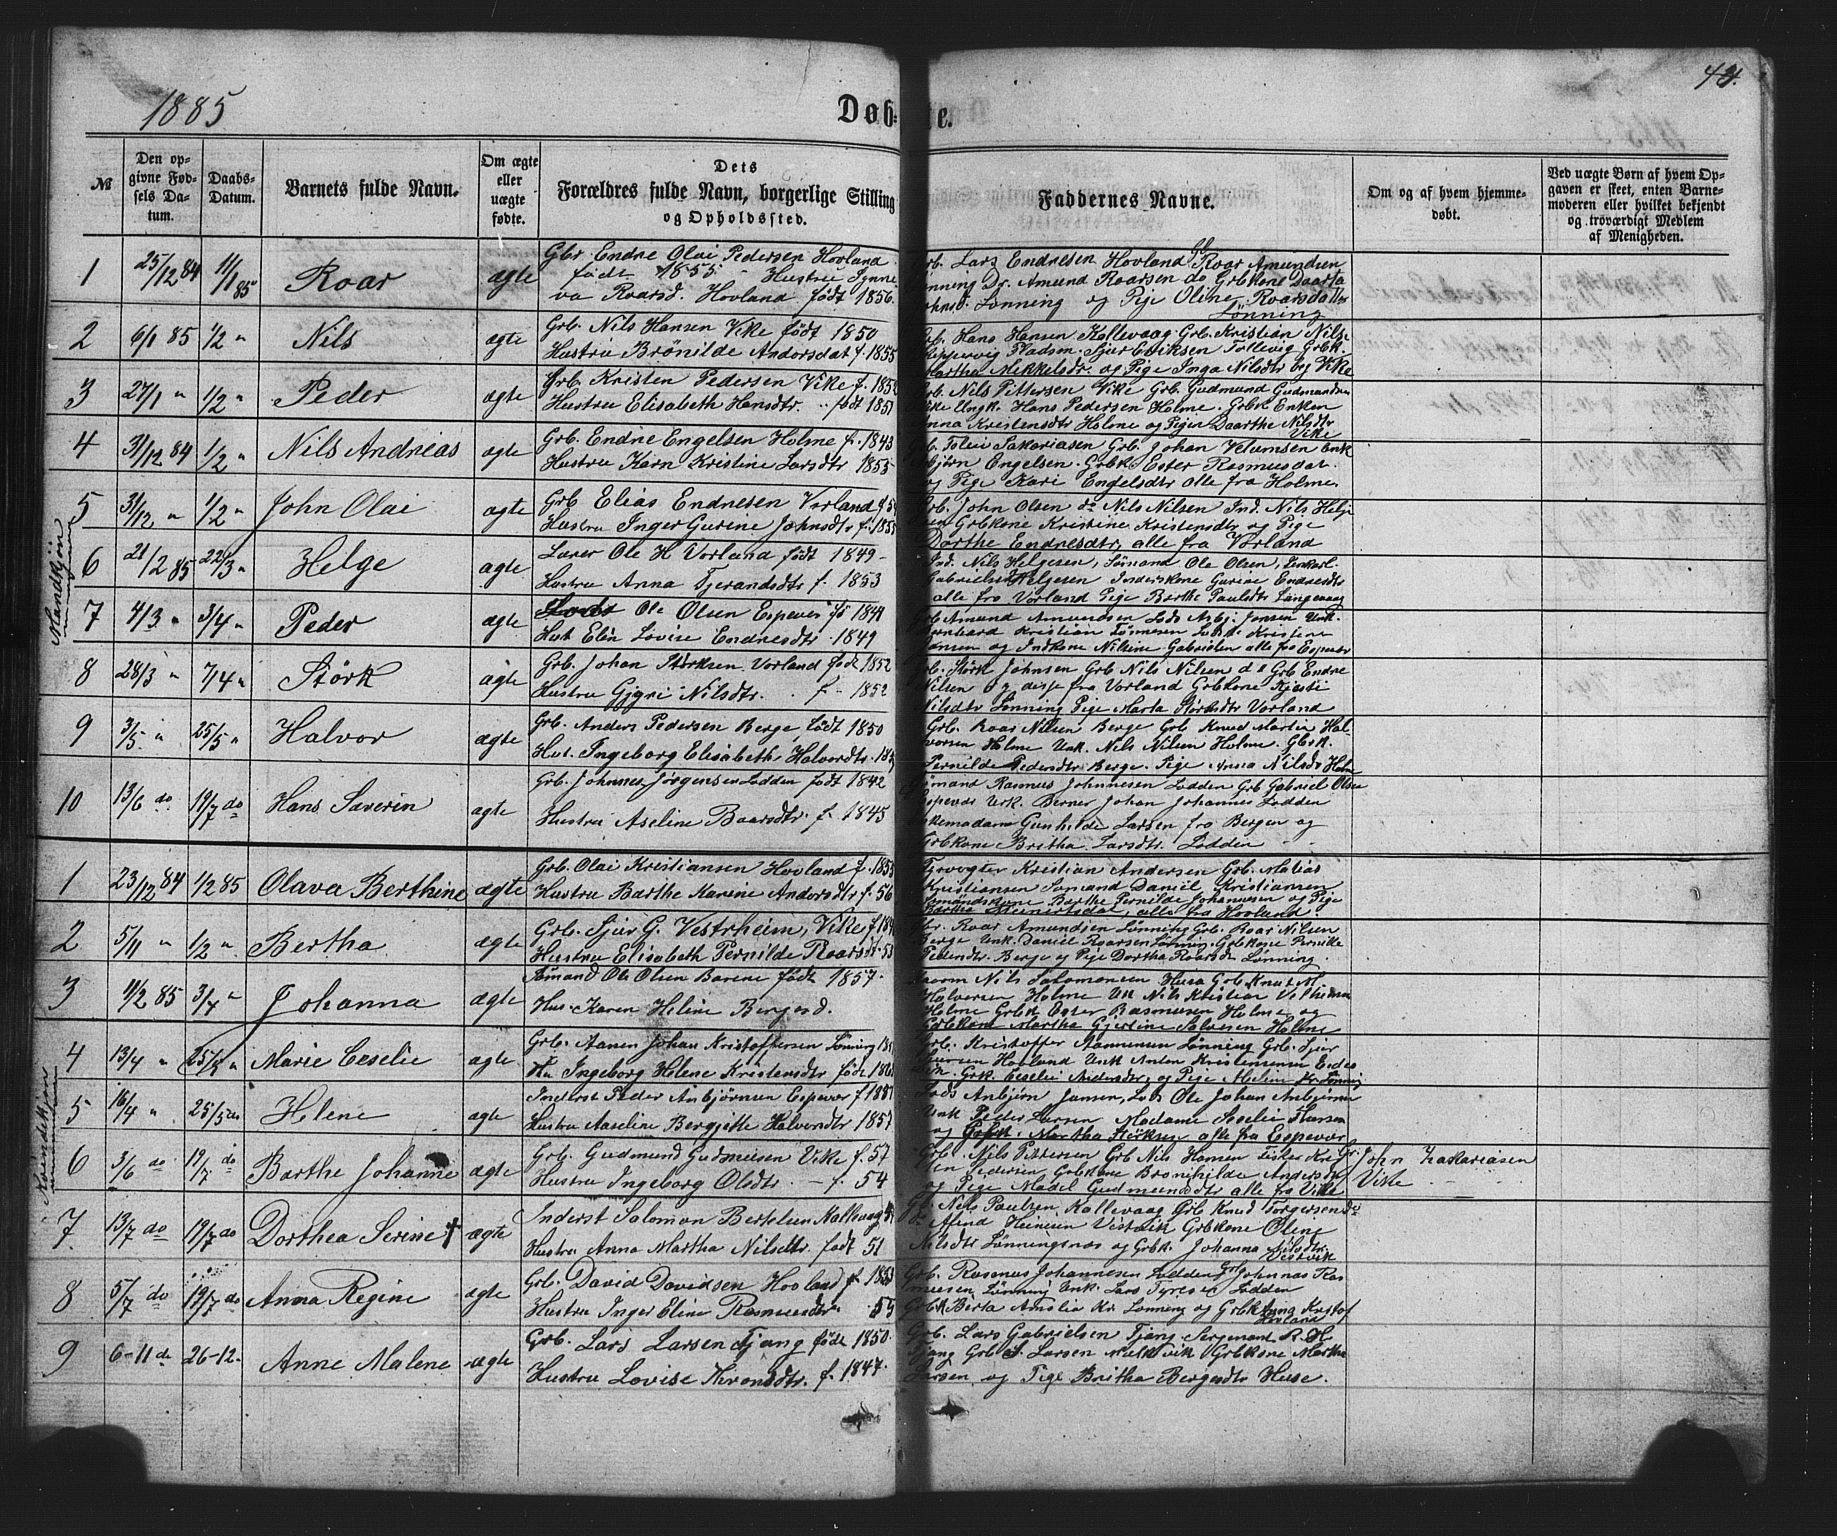 1885
Døbte.
49.
№
Den opgivne Fødsels Datum.
Daabs-Datum.
Barnets fulde Navn.
Om ægte eller uægte fødte.
Dets Forældres fulde Navn, borgerlige Stilling og Opholdssted.
Faddernes Navne.
Om og af hvem hjemmedøbt.
Ved uægte Børn af hvem Opgaven er skeet, enten Barnemoderen eller hvilket bekjendt og troværdigt Medlem af Menigheden.
Mandkjøn
1 25/12 84 11/1 85 Roar ægte
Gbr Endre Olai Pedersen Hovland
født 1855 - Hustru Synne
va Roarsd. Hovland født 1856.
Grb. Lars Endresen Hovland Roar Amundsen
Lønning Dr. Amund Roarsen do Grbkone Daarta
Lønning og Pige Oline Roarsdatter
Lønning
2 6/1 85 1/2 " Nils ægte
Grb. Nils Hansen Vike født 1850
Hustru Brønilde Andorsdat f. 1855
Grb. Hans Hansen Kallevaag Grb. Kristian Nils
Pladsm. Sjur Eriksen Tollevig Grbk.
Martha Mikkelsdr. og Pige Inga Nilsdtr beg Vike
3 27/1 " 1/2 " Peder ægte
Grb. Kristen Pedersen Vike f. 1852
Hustru Elisabeth Hansdtr. " født 1851
Grb. Nils Pittersen Vike Grb Gudmund Gudmundsen
Vike Ungk. Hans Pedersen Holme. Grbk Enken
Anna Kristensdtr Holme og Pigen Daarthe Nilsdtr
Vike
4 31/12 84 1/2 " Nils Andreas ægte
Grb. Endre Engelsen Holme f. 1843
Hustru Karn Kristine Larsdtr 1855
Grb. Tolleiv Sakariasen Grb. Johan Velumsen Enk
Asbjørn Engelsen. Grbk Ester Rasmusdat.
og Pige Kari Engelsdtr alle fra Holme.
5 31/12 " 1/2 " John Olai ægte
Grb Elias Endresen Vorland f 54
Hustru Inger Gurine Johnsdtr f. 1855
Grb. John Olsen do Nils Nilsen Ind. Nils Helge
sen Grbkone Kristine Kristensdtr og Pige
Dorthe Endresdtr, alle fra Vorland
6 21/2 85 22/3 " Helge ægte
Lærer Ole H. Vorland født 1849-
Hustru Anna Tjerandsdtr f. 1853
Ind. Nils Helgesen, Sømand Ole Olsen,
Gabriel Helgesen, Inderskone Gurine Endresdtr
alle fra Vorland Pige Berthe Paulsdtr Langevaag
7 4/3 " 3/4 " Peder ægte
Ole Olsen Espever fø 1849
Hust Elin Lovise Endresdtr. 1849
Grb Amund Amundsen Lods Asbj. Jansen Unk.
Bernhard Kristian Tønnesen Kristine
Jansen og Indkone Nilsine Gabrielsen alle fra Espever
8 28/3 " 7/4 " Störk ægte
Grb. Johan Störksen Vorland født 1852
Hustru Gjøri Nilsdtr. " f - 1852
Grb. Störk Johnsen Grb Nils Nilsen d e Grb Endre
Nilsen og disse fra Vorland Grbkone Kjersti
Nilsdtr Lønning Pige Marta Störksdtr Vorland
9 3/5 " 25/5 " Halvor ægte
Grb. Anders Pedersen Berge, født 1850
Hust. Ingeborg Elisabeth Halvordtr.
Grb. Roar Nilsen Berge Grb Knud Martin Hal
vorsen Holme Unk. Nils Nilsen Holme. Gbrk.
Pernilde Pedersdtr Berge. Pige Anna Nilsdr Holme
10 13/6 do 19/7 do Hans Saverin ægte
Grb. Johannes Jørgensen Lodden født 1842
Hustru Aseline Baarsdtr. f. 1845
Sømand Rasmus Johannesen Lodden Grb Gabriel Olsen
Espevær Unk. Berner Johan Johannes Lodden
Gunhilde Larsen fra Bergen og
Grbkone Britha Larsdtr. Lodden
Kvindekjøn
1 23/12 84 1/2 85 Olava Berthine ægte
Grb. Olai Kristiansen Hovland f. 1855
Hustru Barthe Marine Andorsdtr f. 56
Kristian Andersen Grb. Matias
Kristiansen Sømand Daniel Kristiansen
Sømandskone Barthe Pernilde Johannesen og Pige
alle fra Hovland.
2 5/11 " 1/2 " Bertha ægte
Grb. Sjur G. Vestrheim, Vike f 184
Hustru Elisabeth Pernilde Roarsdt
Roar Amundsen Lønning Grb. Roar Nilsen
Berge Unk. Daniel Roarsen Lønning. Grbkone Pernilde
Pedersdtr. Berge og Pige Dortha Roarsdtr Lønning.
3 11/2 85 3/4 " Johanna ægte
Sømand Ole Olsen Barene født 1857.
Hus. Karen Heline Bergesd.
Nils Salomonsen Husa Grb. Knut M.
Halversen Holme Unk Nils Kristian Vilhelmsen
Holme Grbk Ester Rasmusen Holme og
Grbkone Martha Gjertine Salvesen Holme
4 13/4 " 25/5 " Marie Ceselie ægte
Grb. Aanen Johan Kristoffersen Lønning
Hu Ingeborg Helene Kristensdtr født
Grb. Kristoffer Aanensen Lønning Grb. Sjur
Hovland Unk Anton Kristensen
Grk. Ceselie og Pige
5 16/4 " 25/5 do Helene ægte
Inderst Peder Asbjørnsen Espever f
Hustru Aaseline Bergjitte Halvorsdtr 1857
Lods Asbjørn Jansen, Lods Ole Johan Asbjørnsen
Unk Peder Larsen Madame Thorsen
og Martha Störksen alle fra Espevær
6 3/6 do 19/7 do Barthe Johanne ægte
Grb. Gudmund Gudmusen Vike f. 57
Hustru Ingeborg Olsdtr. - f. 54
Grb. Nils Pittersen Grb Nils Hansen
Pedersen, Grbkone Bronhilde Andersdr
og Pige Madel Gudmundsdtr alle fra Vike
Gr. John Zakariasen
Vike
7 13/7 do 19/7 do Dorthea Serine † ægte
Inderst Salomon Bertelsen Kallevaag
Hustru Anna Martha Nilsdtr. født 51
Nils Paulsen Kallevaag Grb Knud Torgersen do
Vestvik Grbkone Oline
Nilsdtr Lønningsnæs og Grbk. Johanna Nilsdtr.
Vestvik
8 5/7 do 19/7 do Anna Regine ægte
Grb. David Davidsen Hovland f. 1853
Hustru Inger Eline Rasmusdtr
Grb. Rasmus Johannesen Lodden Grb Johnas Ras
musen Lønning Unk. Lars Lodden
Grbk Berta Amalia Lønning og Grbk Anna Kristof
Hovland
9 6-11 do 26-12. Anne Malene ægte
Grb. Lars Larsen Tjang født 1850.
Hustru Lovise Thronsdtr. f. 1847.
Grb. Lars Gabrielsen Tjang Sergeant R. H.
Tjang Grb S. Larsen Grbkone Marthe
Larsen og Pige Britha Bergesdtr Huse.